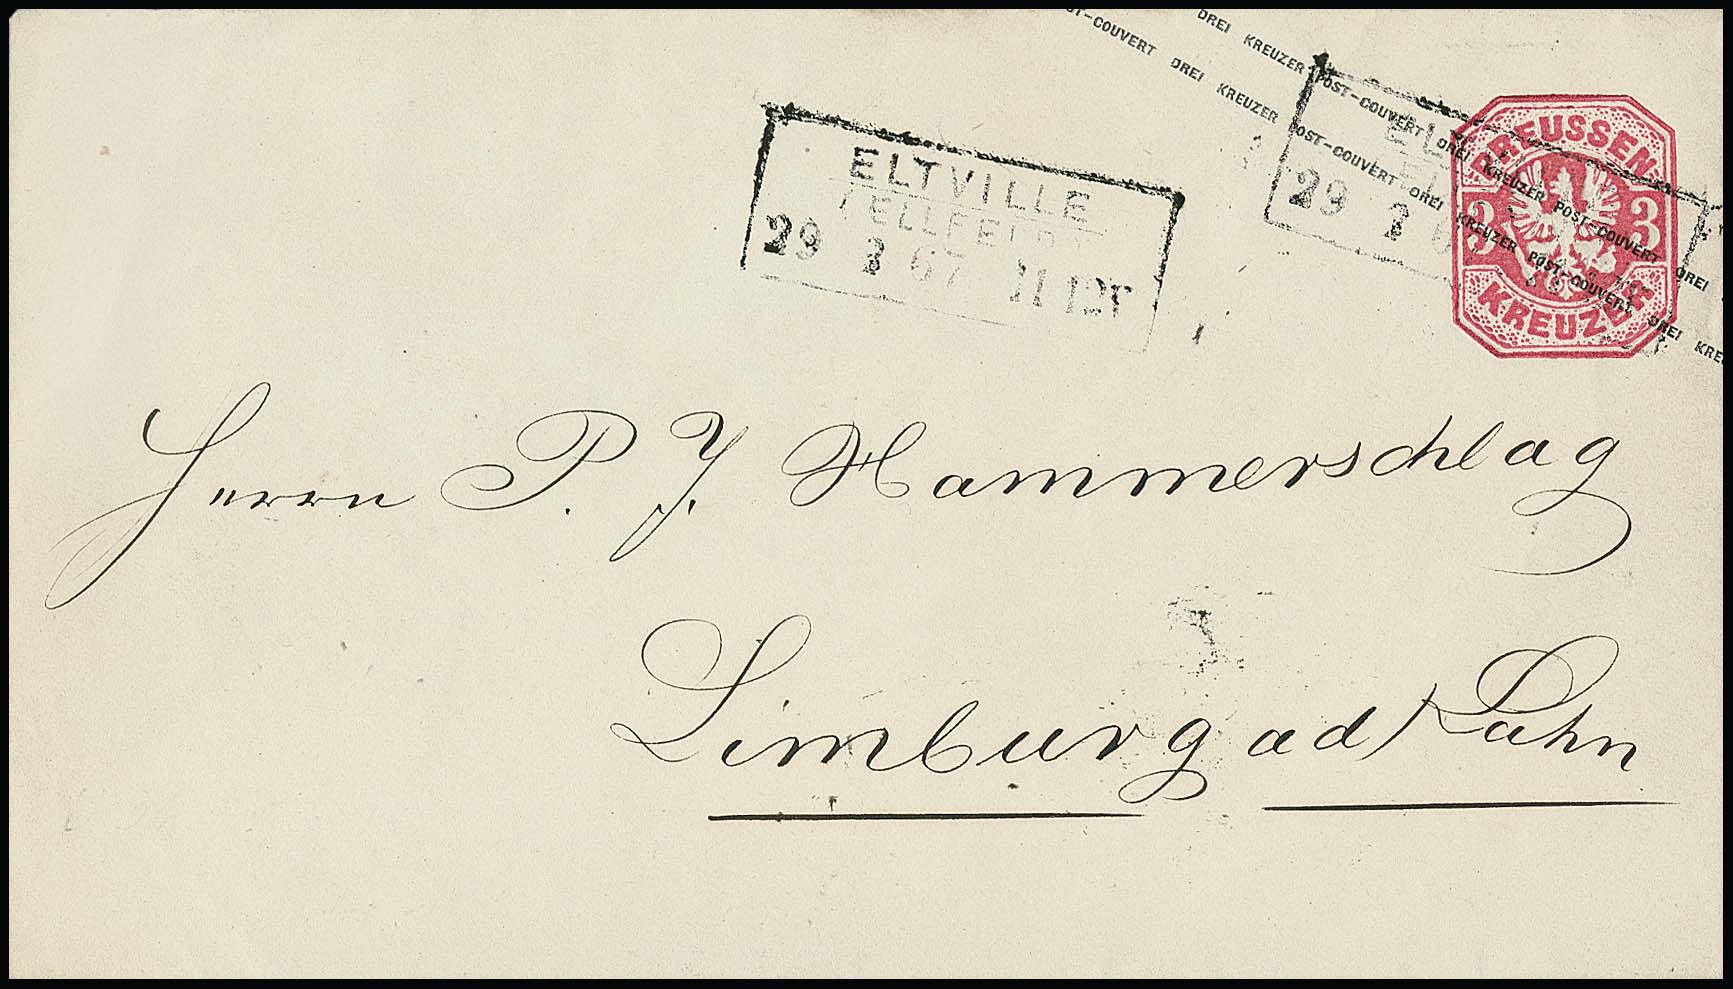 ST-COUVERT DREI KREUZER POST-COUVERT DREI KREUZER POST-COUVERT DREI KRE
DREI KREUZER POST-COUVERT DREI KREUZER POST-COUVERT DREI
ELTVILLE
29 67 11 12
29
PREUSSEN
3 3
KREUZER
Herrn P. J. Hammerschlag
Limburg ad Lahn